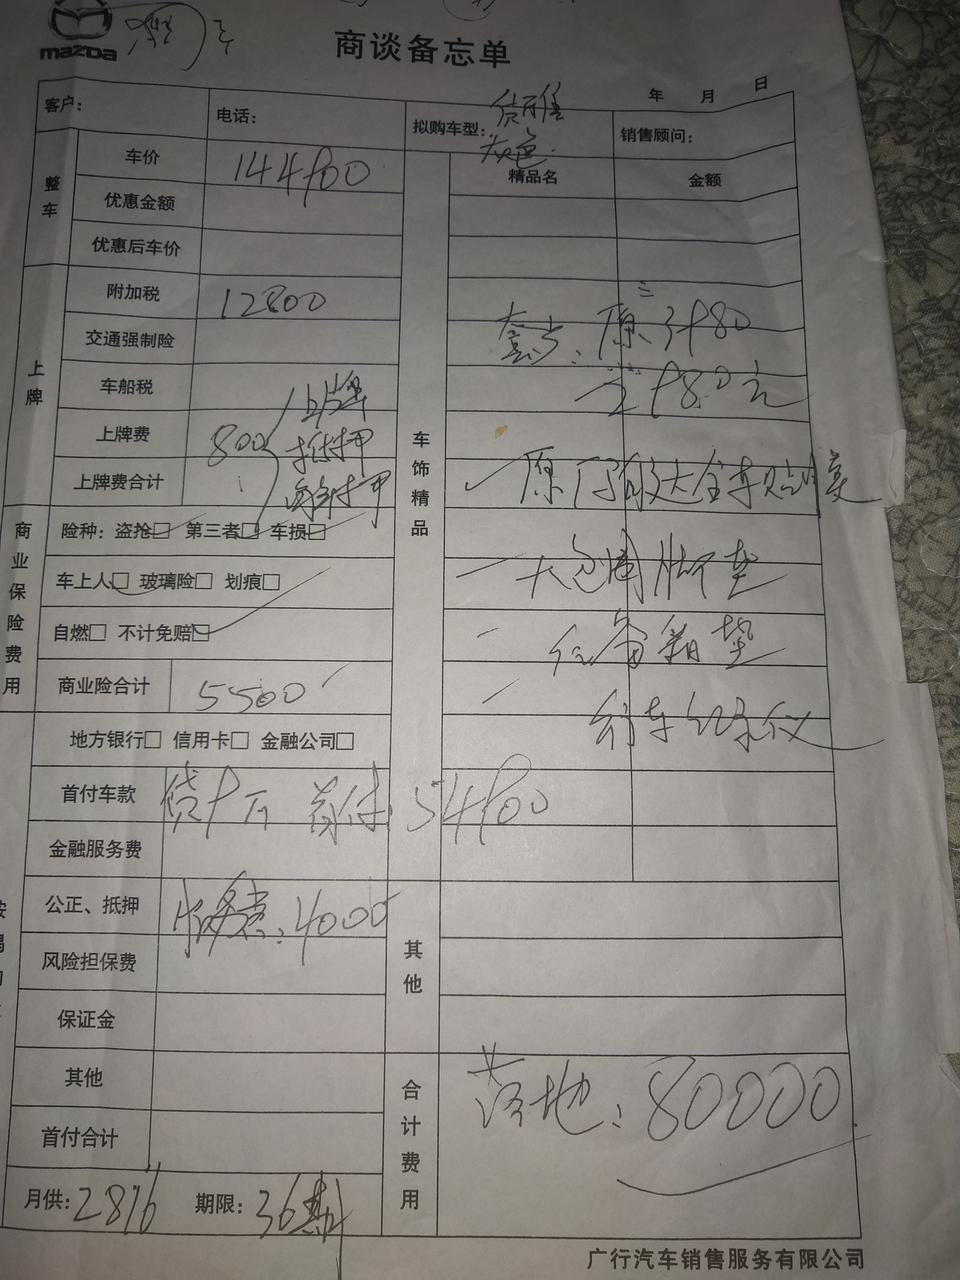 mazda
商谈备忘单
年 月 日
客户： 电话： 拟购车型： 销售顾问：
灰色
整车
车价 144900
精品名 金额
优惠金额
优惠后车价
上牌
附加税 12800
交通强制险
原3980
车船税
2980元
上牌费 800 上牌
抵押
上牌费合计
车饰精品
商业保险费用
险种：盗抢□ 第三者□ 车损□
车上人□ 玻璃险□ 划痕□
大包围脚垫
自燃□ 不计免赔□
后备箱垫
商业险合计 5500
行车记录仪
地方银行□ 信用卡□ 金融公司□
首付车款 贷9万 首付：54900
金融服务费
公正、抵押 服务费：4000
风险担保费
其他
保证金
其他
合计费用
落地：80000
首付合计
月供：2816 期限：36期
广行汽车销售服务有限公司